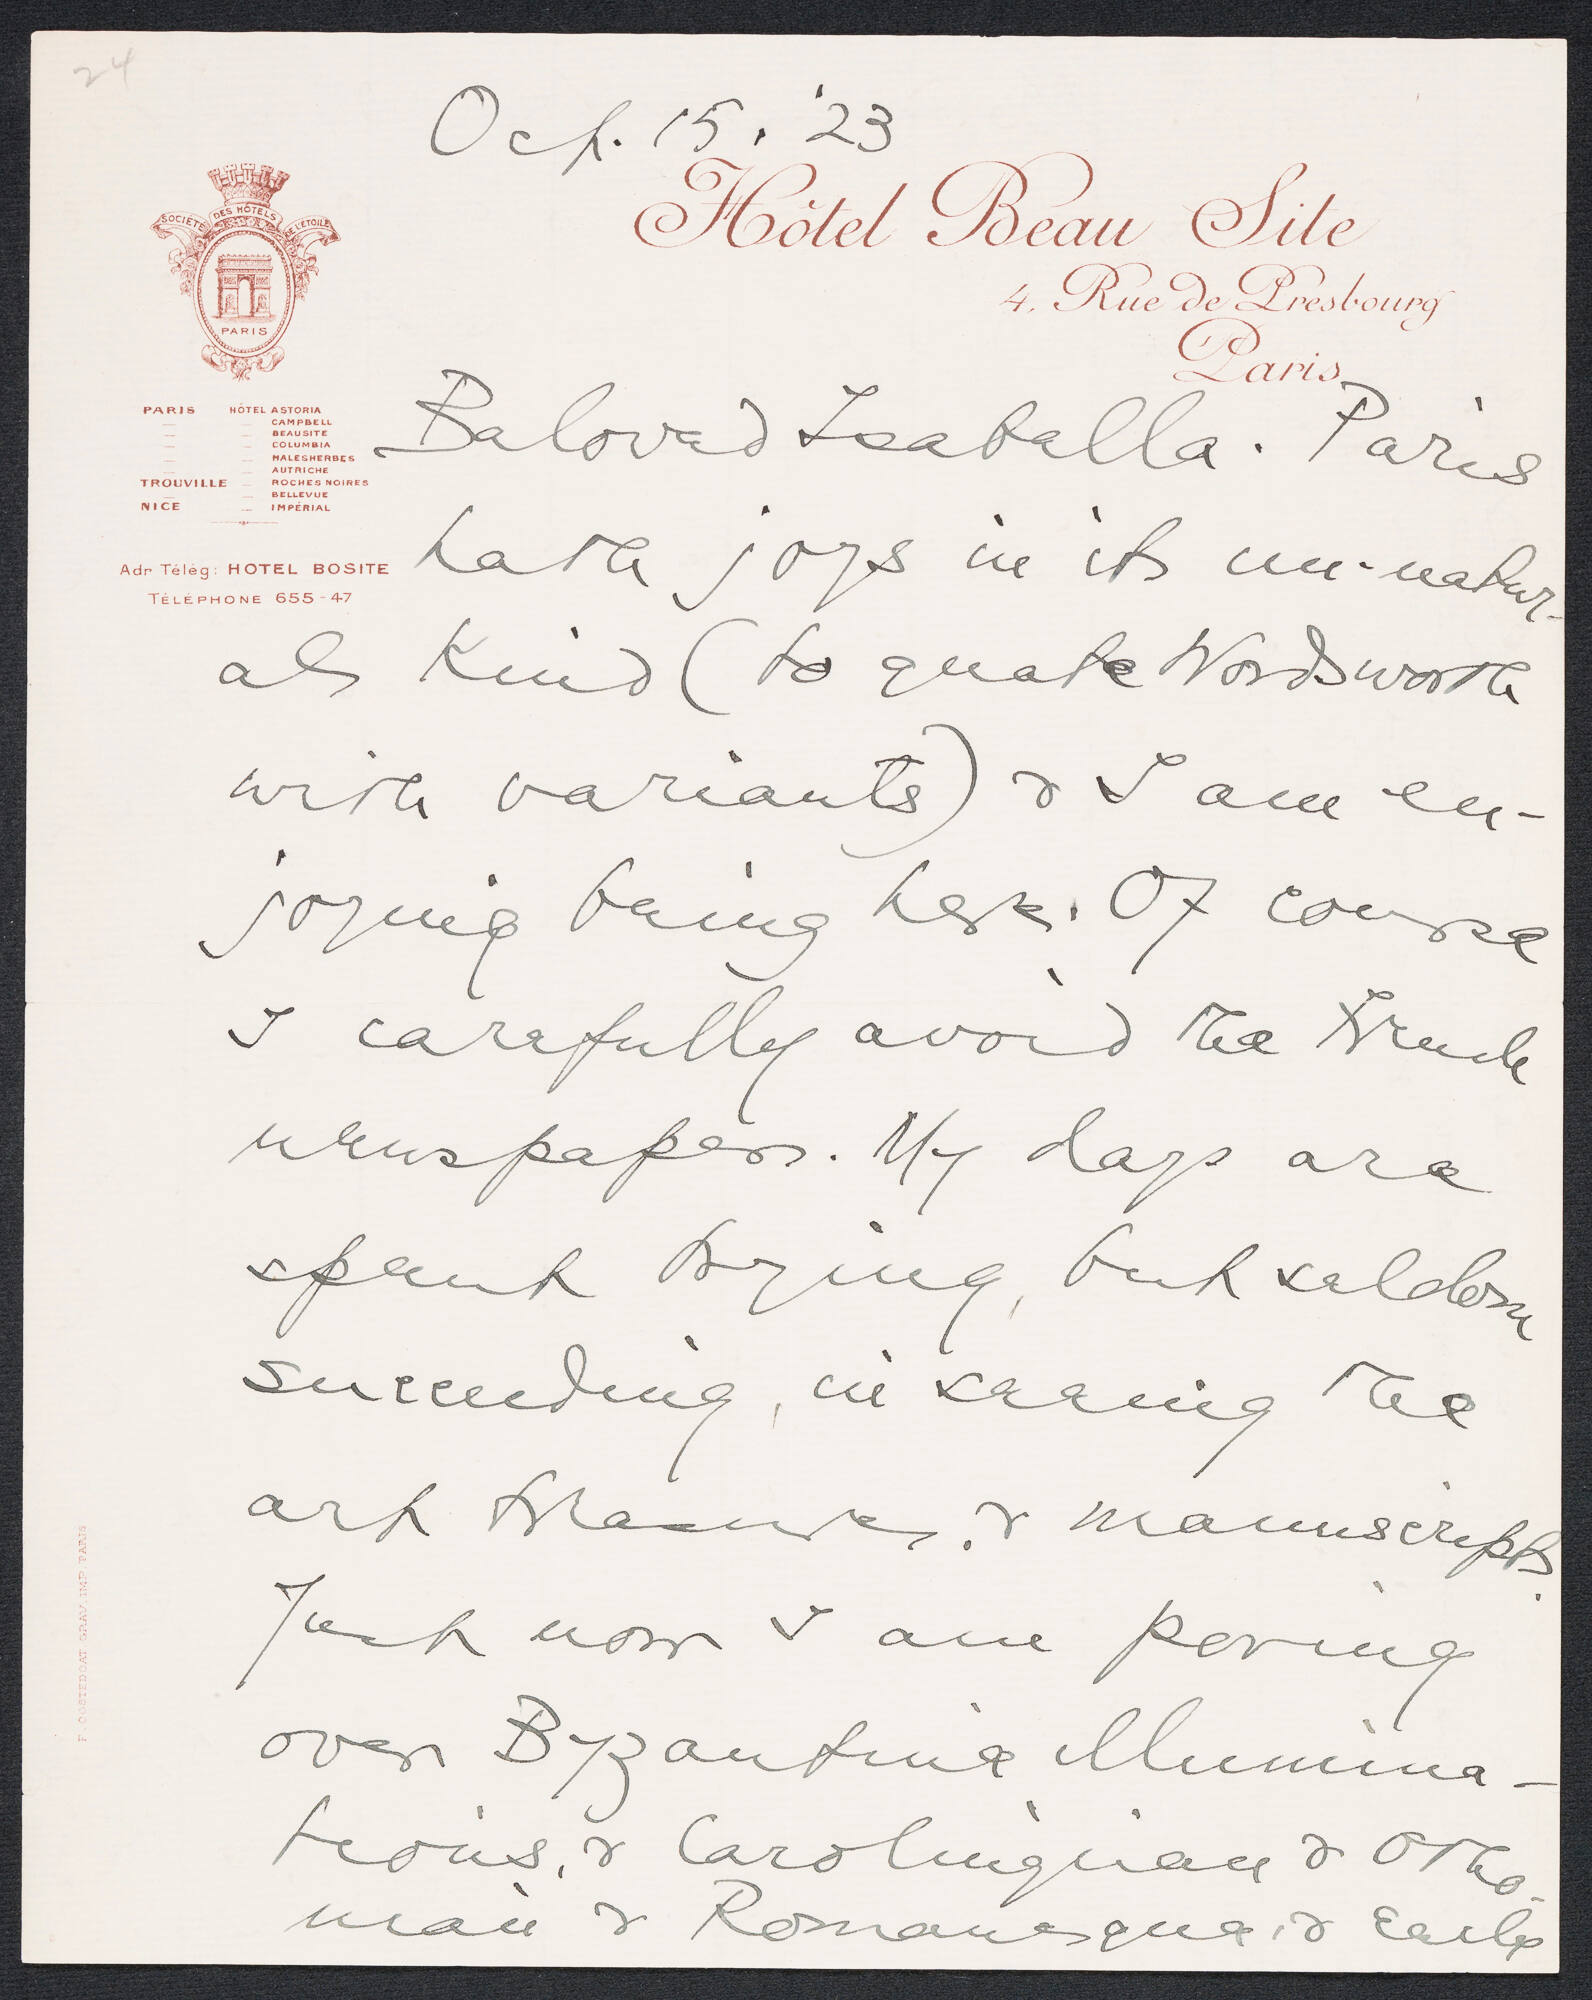 24
Oct. 15. '23
Hôtel Beau Site
4, Rue de Presbourg
Paris
SOCIÉTÉ DES HÔTELS DE L'ÉTOILE
PARIS
PARIS HÔTEL ASTORIA
— — CAMPBELL
— — BEAUSITE
— — COLUMBIA
— — MALESHERBES
— — AUTRICHE
TROUVILLE — ROCHES NOIRES
— — BELLEVUE
NICE — IMPÉRIAL
Adr Télég: HOTEL BOSITE
TÉLÉPHONE 655-47
Beloved Isabella. Paris
hath joys in its un-natur-
al kind (to quote Wordsworth
with variants) & I am en-
joying being here. Of course
I carefully avoid the French
newspapers. My days are
spent trying, but seldom
succeeding, in seeing the
art treasures, & manuscripts.
Just now I am poring
over Byzantine illumina-
tions, & Carolingian & Otho-
nian & Romanesque, & early
F. COSTEDOAT GRAV. IMP. PARIS